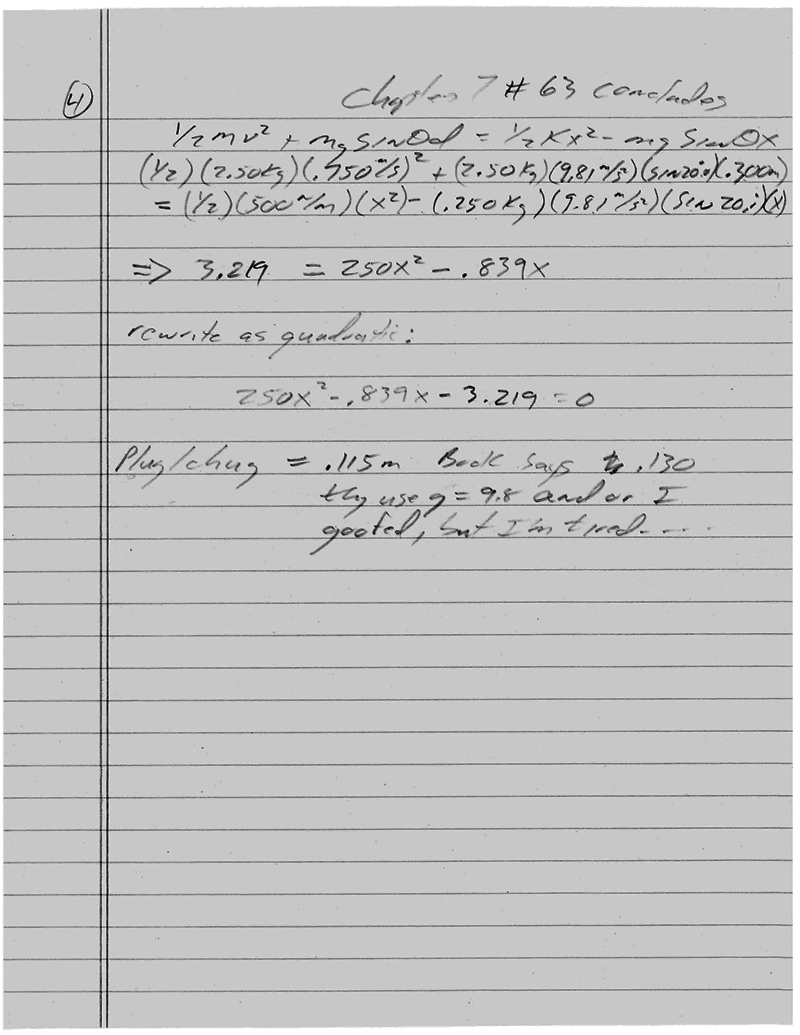 4
Chapter 7 # 63 concludes
1/2 mv² + mg sinθd = 1/2 Kx² - mg sinθx
(1/2)(2.50Kg)(.750m/s)² + (2.50Kg)(9.81m/s²)(sin20.0)(.300m)
= (1/2)(500 N/m)(x²) - (.250Kg)(9.81m/s²)(sin 20.0)(x)
=> 3.219 = 250x² - .839x
rewrite as quadratic:
250x² - .839x - 3.219 = 0
Plug/chug = .115m Book says .130
they use g = 9.8 and or I
goofed, but I'm tired....